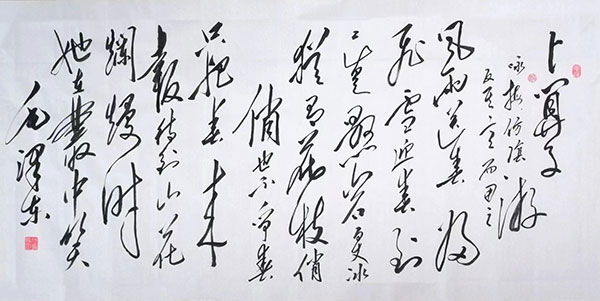 卜算子
咏梅 仿陆游
反其意而用之
风雨送春归
飞雪迎春到
已是悬岩百丈冰
犹有花枝俏
俏也不争春
只把春来
报待到山花
烂熳时
她在丛中笑
毛泽东